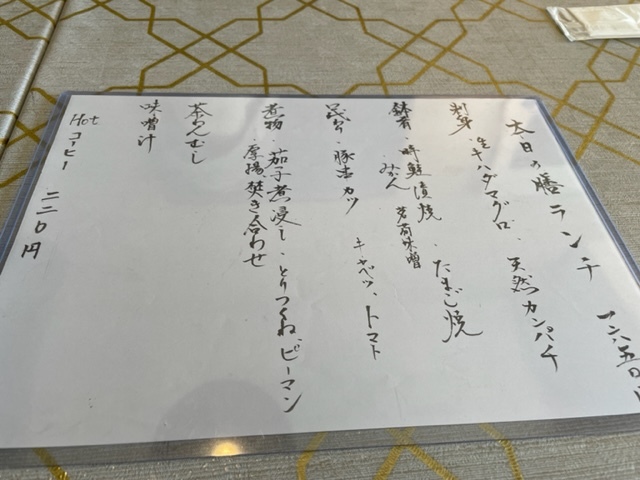 本日の膳ランチ 一六五〇円
刺身 生キハダマグロ、天然カンパチ
鉢肴 時鮭漬焼、たまご焼
茗荷味噌
豚ヒレカツ キャベツ、トマト
煮物 茄子煮浸し、とりつくね、ピーマン
厚揚焚き合わせ
茶わんむし
味噌汁
Hot コーヒー 二二〇円